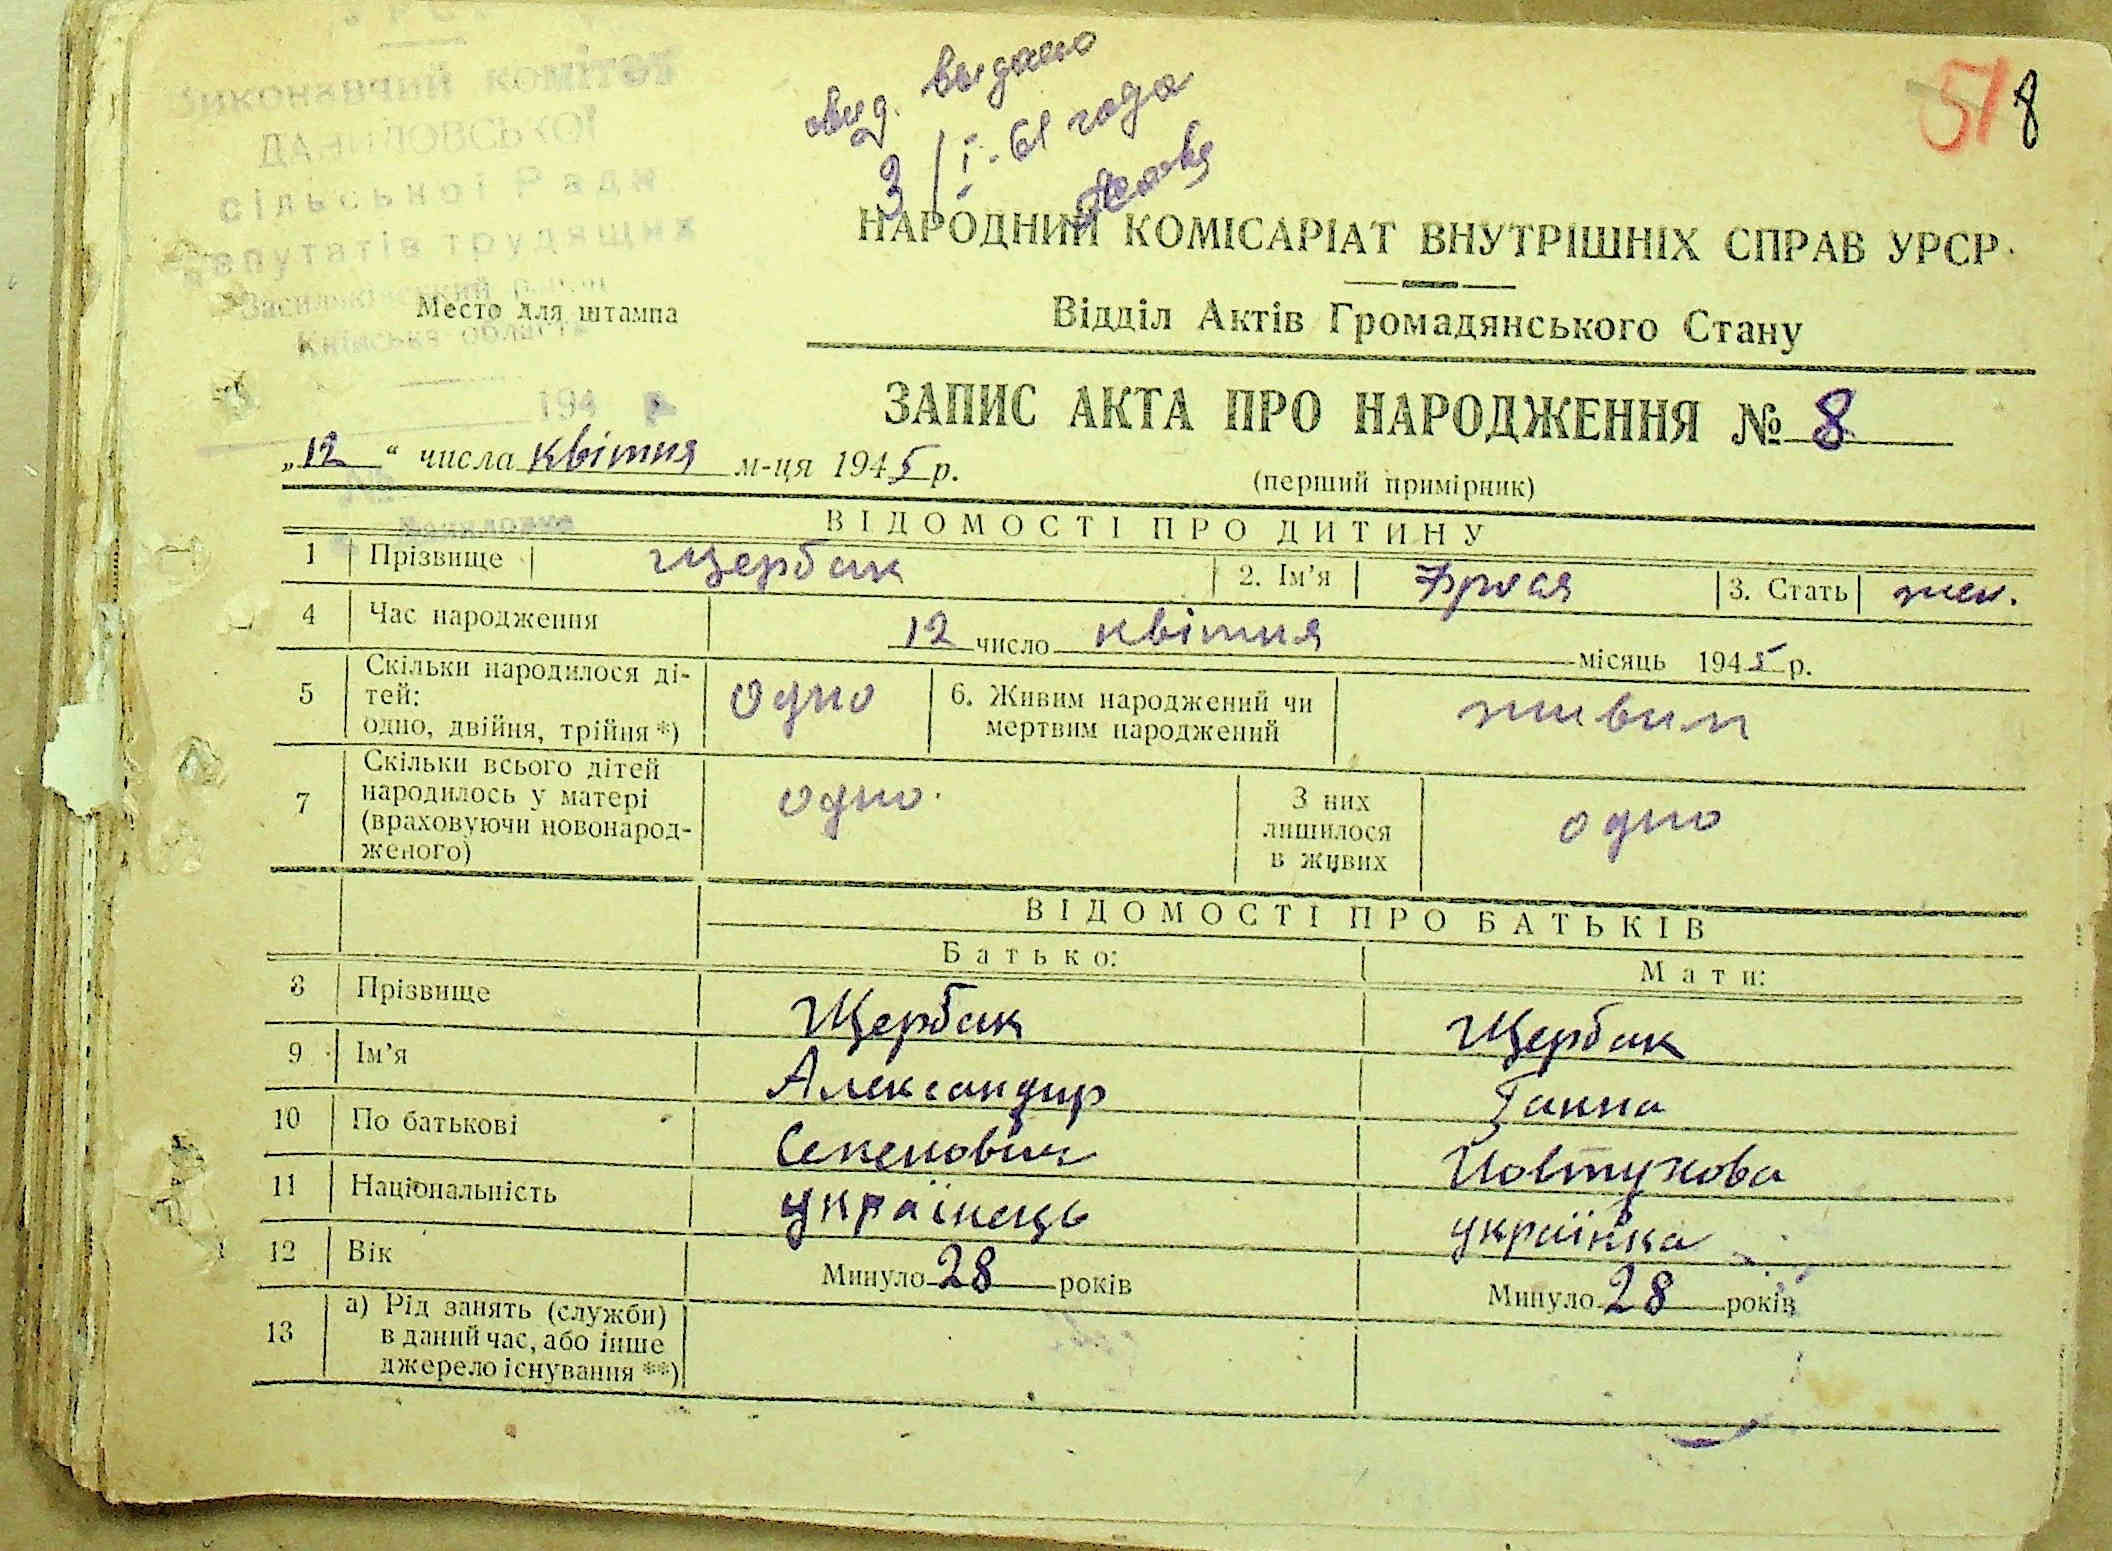 Виконавчий комітет
ДАНИЛОВСЬКОЇ
сільської Ради
депутатів трудящих
Васильківський район
Київська область
194
свид. выдано
3/I-61 года
51 8
НАРОДНИЙ КОМІСАРІАТ ВНУТРІШНІХ СПРАВ УРСР
Место для штампа
Відділ Актів Громадянського Стану
ЗАПИС АКТА ПРО НАРОДЖЕННЯ № 8
„12“ числа квітня м-ця 1945 р.
(перший примірник)
ВІДОМОСТІ ПРО ДИТИНУ
1 Прізвище Щербак 2. Ім'я Фрося 3. Стать жен.
4 Час народження 12 число квітня місяць 1945 р.
5 Скільки народилося ді-
тей:
одно, двійня, трійня *) одно 6. Живим народжений чи
мертвим народжений живим
7 Скільки всього дітей
народилось у матері
(враховуючи новонарод-
женого) одно. З них
лишилося
в живих одно
ВІДОМОСТІ ПРО БАТЬКІВ
Батько: Мати:
8 Прізвище Щербак Щербак
9 Ім'я Александир Ганна
10 По батькові Семенович Йовтухова
11 Національність українець українка
12 Вік Минуло 28 років Минуло 28 років
13 а) Рід занять (служби)
в даний час, або інше
джерело існування **)